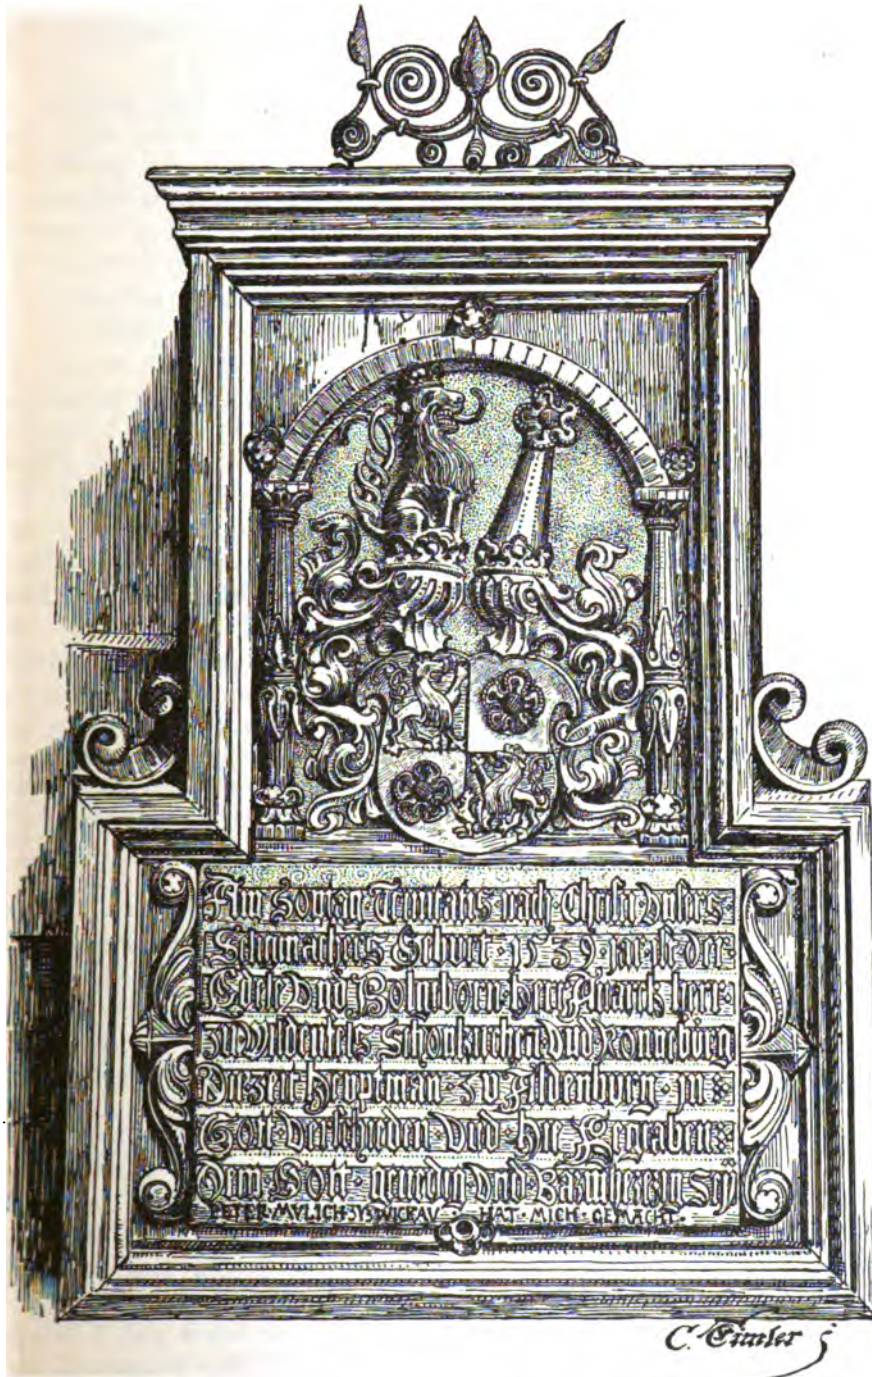 Am Sontag Trinitatis nach Christi Vnsers
Selichmachers Geburt 1539 jar ist der
Edele Vnd Wolgborn herr Anarck herr
zu Vildenfels Schonkirchen Vnd Ronneburg
Diezeit Heuptman zu Aldenburg in
Gott Verschieden Vnd hie Begraben
Dem Gott genedig Vnd Barmhertzig Sey
PETER·MVLICH ZV ZWICKAV· HAT· MICH· GEMACHT·